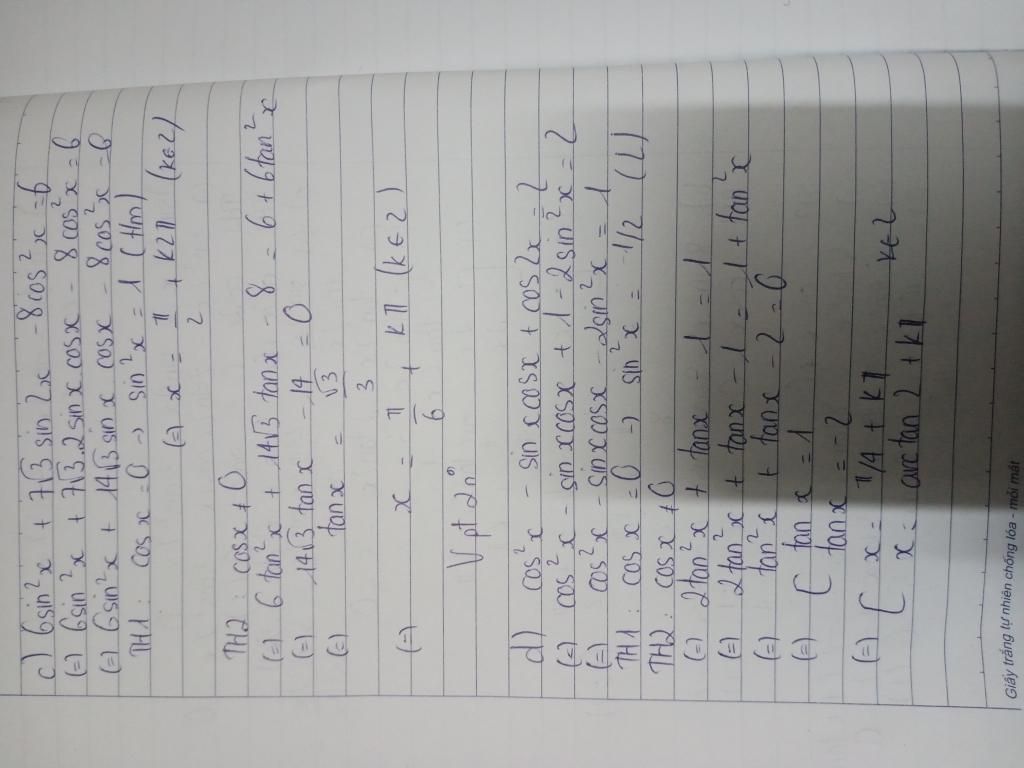 c) 6sin²x + 7√3 sin2x - 8cos²x = 6
(=) 6sin²x + 7√3.2sinx cosx - 8cos²x = 6
(=) 6sin²x + 14√3 sinx cosx - 8cos²x = 6
TH1: cosx = 0 → sin²x = 1 (tm)
(=) x = π/2 + k2π (k∈Z)
TH2: cosx ≠ 0
(=) 6tan²x + 14√3 tanx - 8 = 6 + 6tan²x
(=) 14√3 tanx - 14 = 0
(=) tanx = √3/3
(=) x = π/6 + kπ (k∈Z)
V pt 2n⁰
d) cos²x - sinxcosx + cos2x = 2
(=) cos²x - sinxcosx + 1 - 2sin²x = 2
(=) cos²x - sinxcosx - 2sin²x = 1
TH1: cosx = 0 → sin²x = -1/2 (L)
TH2: cosx ≠ 0
(=) 2tan²x + tanx - 1 = 1
(=) 2tan²x + tanx - 1 = 1 + tan²x
(=) tan²x + tanx - 2 = 0
(=) [ tanx = 1
tanx = -2
(=) [ x = π/4 + kπ k∈Z
x = arctan2 + kπ
Giấy trắng tự nhiên chống lóa - mỏi mắt